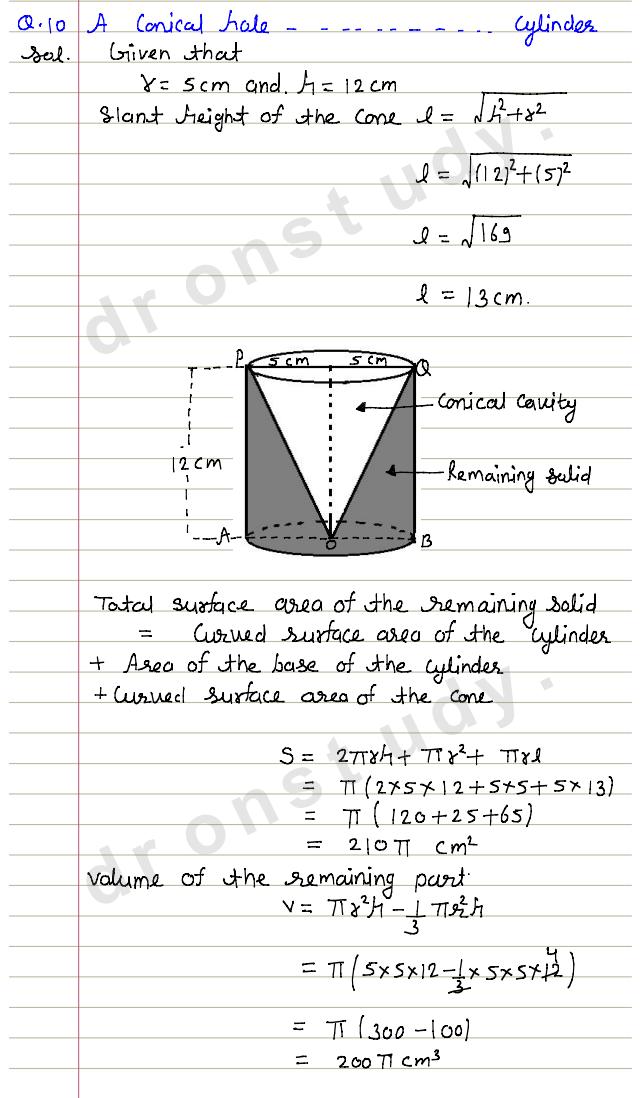 Q.10 A Conical hole - - - - - - - - - - - - Cylinder
Sol. Given that
r = 5cm and. h = 12cm
Slant height of the Cone l = √h²+r²
l = √(12)²+(5)²
l = √169
l = 13cm.
P 5cm 5cm Q
Conical Cavity
12cm
Remaining solid
A O B
Total surface area of the remaining solid
= Curved surface area of the Cylinder
+ Area of the base of the Cylinder
+ Curved surface area of the Cone
S = 2πrh + πr² + πrl
= π(2×5×12+5×5+5×13)
= π(120+25+65)
= 210π cm²
Volume of the remaining part
V = πr²h - 1/3 πr²h
= π(5×5×12 - 1/3 × 5×5×12 4)
= π(300-100)
= 200π cm³
dronstudy.
dronstudy.